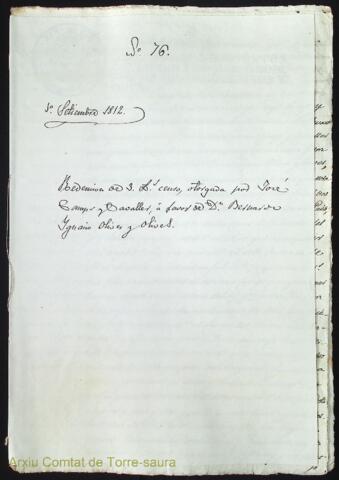 Nº 76.
5º Setiembre 1812.
Redemina de 3. Lˢ censo, otorgada por José
Camps y Cavaller, à favor de Dⁿ Bernardo
Ignacio Olives y Olives.
Arxiu Comtat de Torre-saura